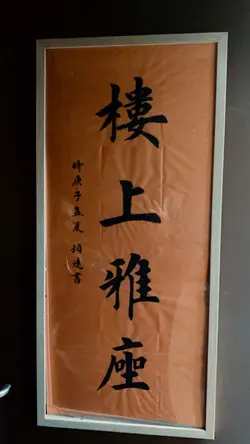 樓上雅座
時庚子孟夏 栢逺書